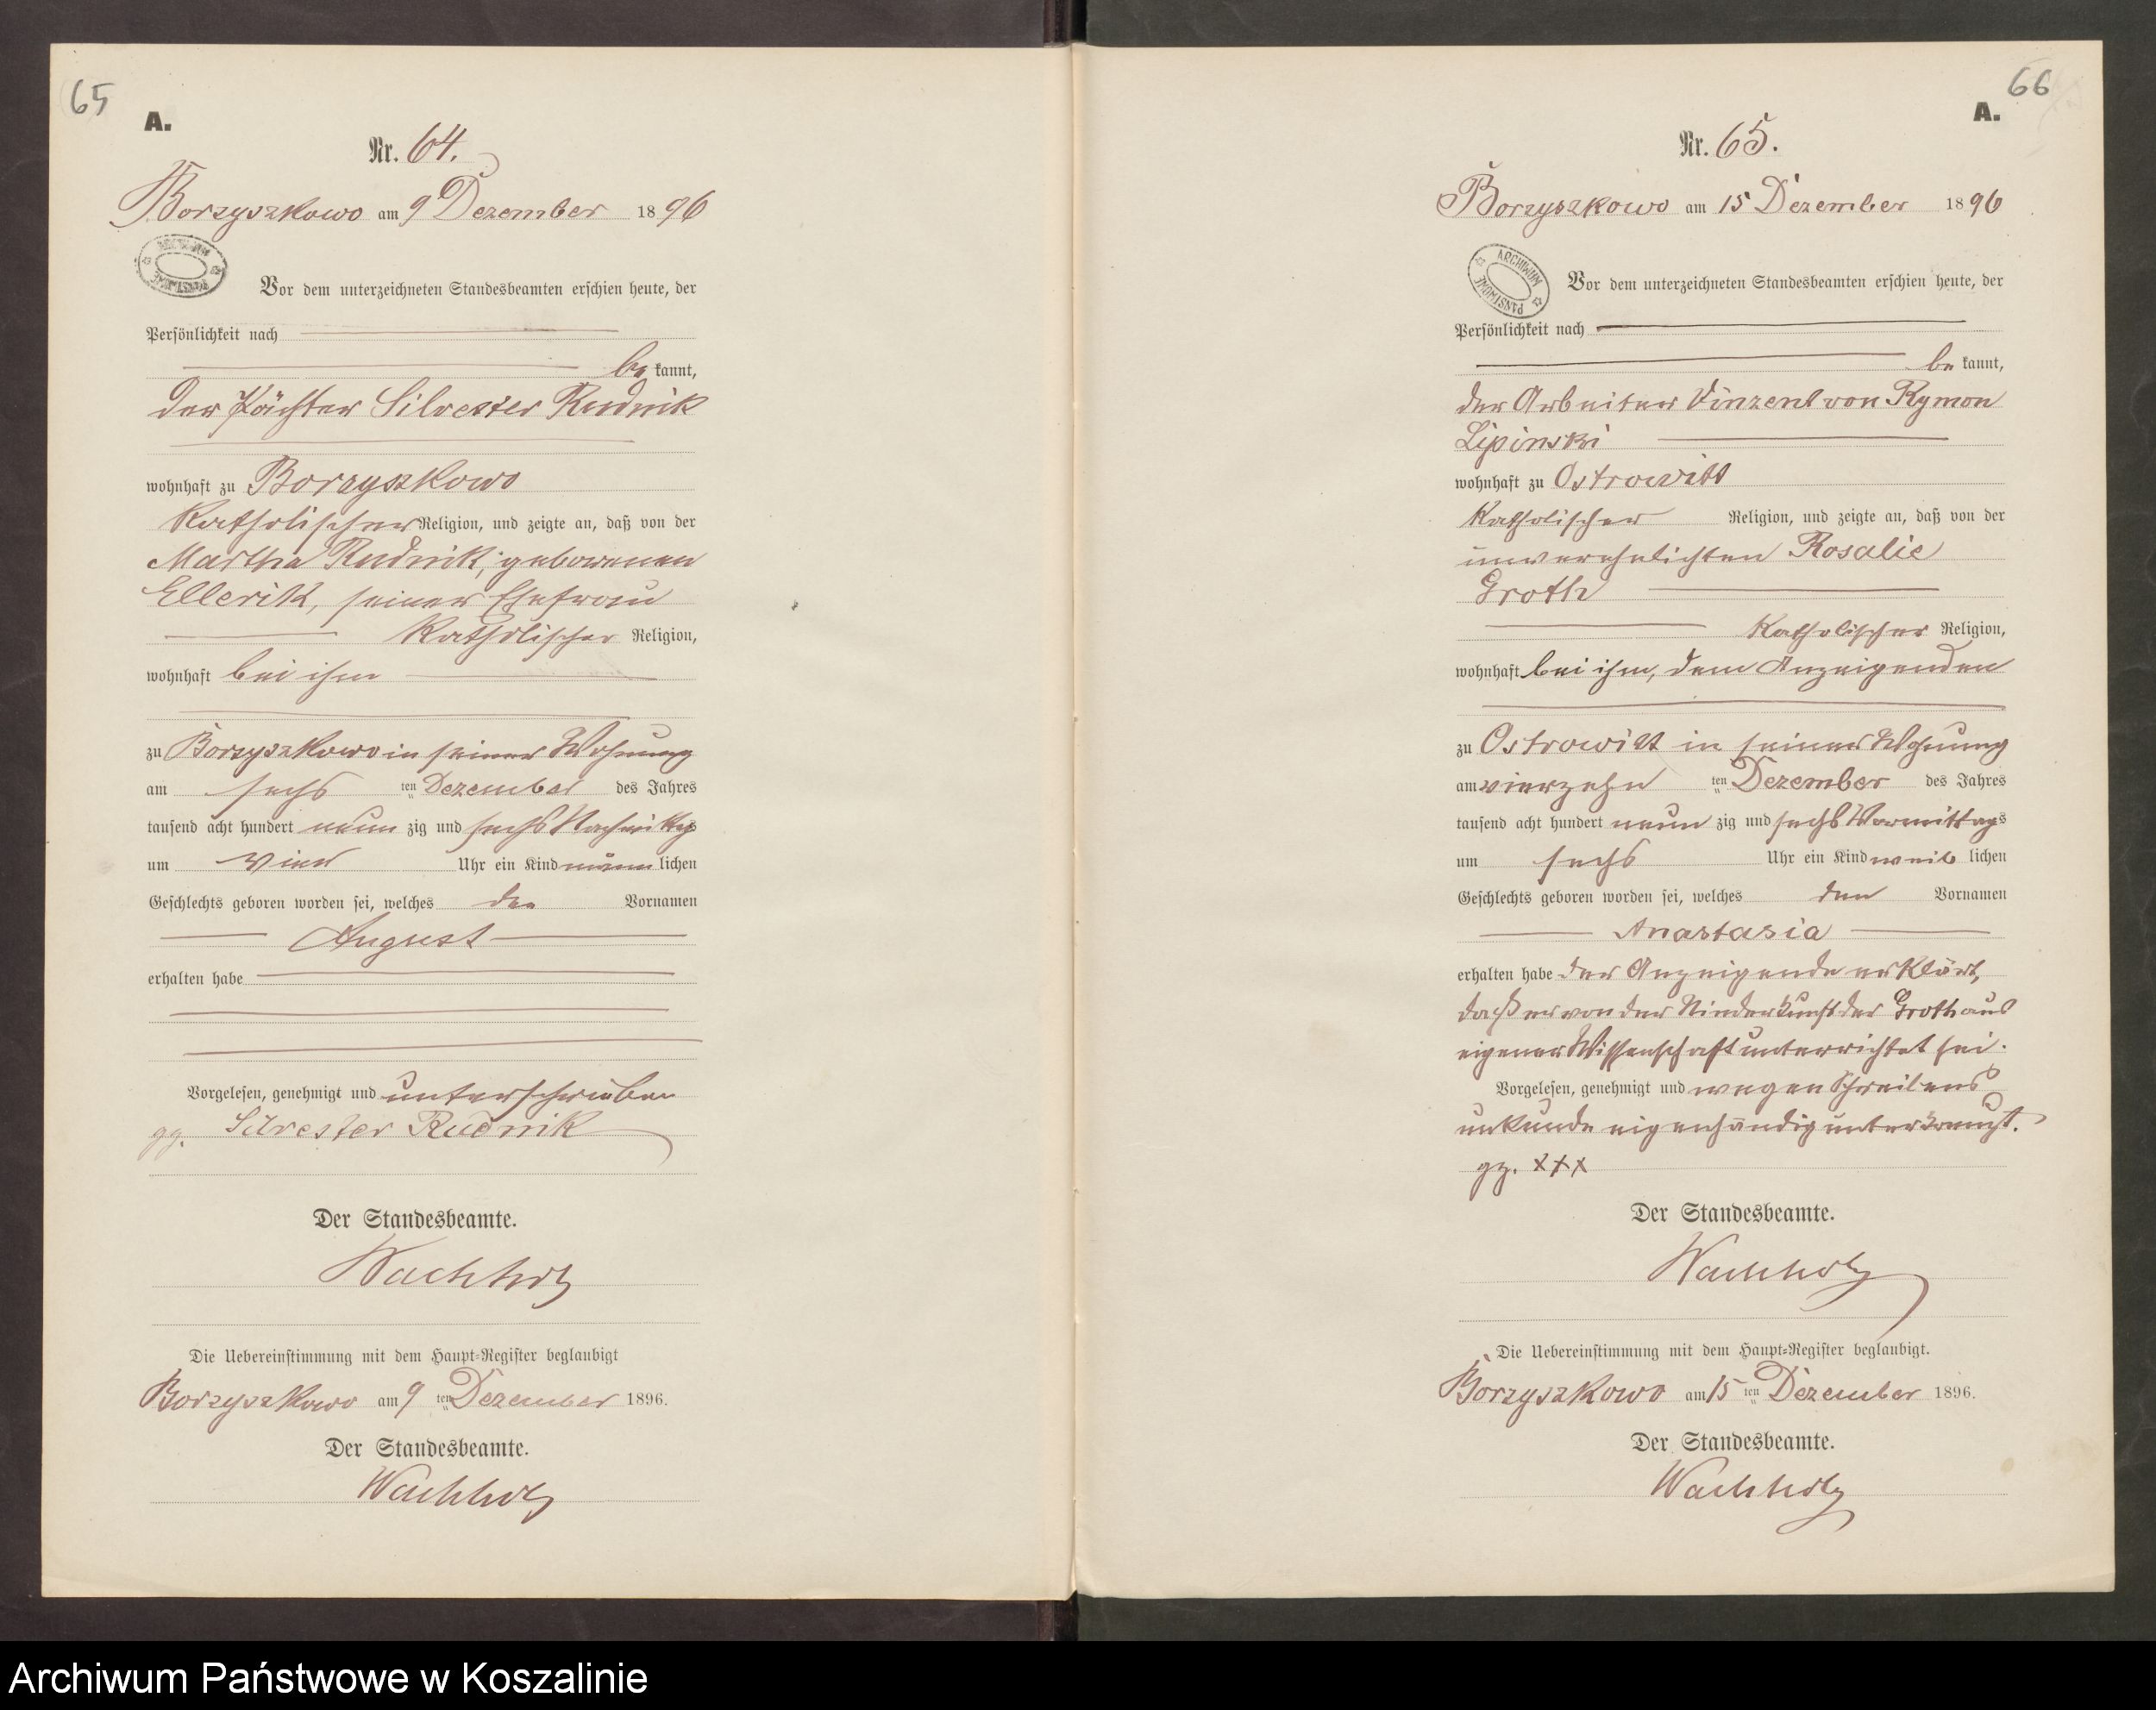 65
A.
Nr. 64.
Borzyszkowo am 9 Dezember 1896
ARCHIWUM PAŃSTWOWE
Vor dem unterzeichneten Standesbeamten erschien heute, der
Persönlichkeit nach
be kannt,
der Pächter Silvester Rudnik
wohnhaft zu Borzyszkowo
katholischer Religion, und zeigte an, daß von der
Martha Rudnik, geborenen
Ellerik, seiner Ehefrau
katholischer Religion,
wohnhaft bei ihm
zu Borzyszkowo in seiner Wohnung
am sechs ten Dezember des Jahres
tausend acht hundert neun zig und sechs Nachmittags
um vier Uhr ein Kind männ lichen
Geschlechts geboren worden sei, welches den Vornamen
August
erhalten habe
Vorgelesen, genehmigt und unterschrieben
gg. Silvester Rudnik
Der Standesbeamte.
Wachholz
Die Uebereinstimmung mit dem Haupt-Register beglaubigt
Borzyszkowo am 9 ten Dezember 1896.
Der Standesbeamte.
Wachholz
66
A.
Nr. 65.
Borzyszkowo am 15 Dezember 1896
ARCHIWUM PAŃSTWOWE
Vor dem unterzeichneten Standesbeamten erschien heute, der
Persönlichkeit nach
be kannt,
der Arbeiter Vinzent von Rymon
Lipinski
wohnhaft zu Ostrowitt
katholischer Religion, und zeigte an, daß von der
unverehelichten Rosalie
Groth
katholischer Religion,
wohnhaft bei ihm, dem Anzeigenden
zu Ostrowitt in seiner Wohnung
am vierzehn ten Dezember des Jahres
tausend acht hundert neun zig und sechs Vormittags
um sechs Uhr ein Kind weib lichen
Geschlechts geboren worden sei, welches den Vornamen
Anastasia
erhalten habe der Anzeigende erklärt,
daß er von der Niederkunft der Groth aus
eigener Wissenschaft unterrichtet sei.
Vorgelesen, genehmigt und wegen Schreibens
unkunde eigenhändig unterkreuzt.
gz. xxx
Der Standesbeamte.
Wachholz
Die Uebereinstimmung mit dem Haupt-Register beglaubigt.
Borzyszkowo am 15 ten Dezember 1896.
Der Standesbeamte.
Wachholz
Archiwum Państwowe w Koszalinie